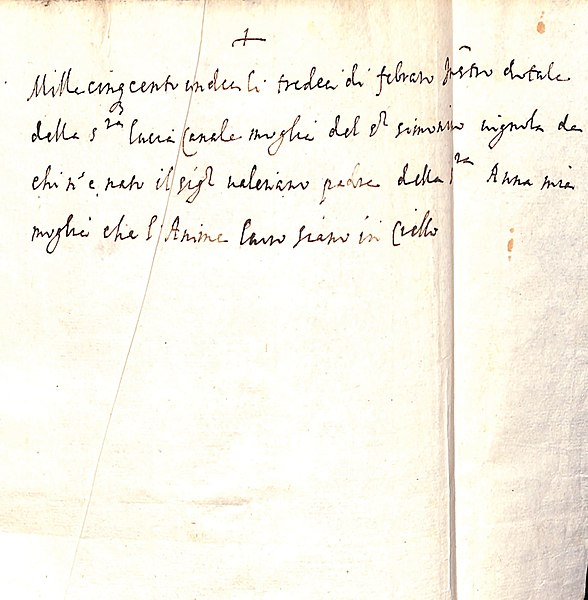 +
Mille cinqcento undeci li tredeci di febraro Instro dotale
della s.ra Lucia Canale moglie del s.r simonino vignola da
chi n'è nato il sig.r valeriano padre della s.ra Anna mia
moglie che l'Anime loro siano in Ciello